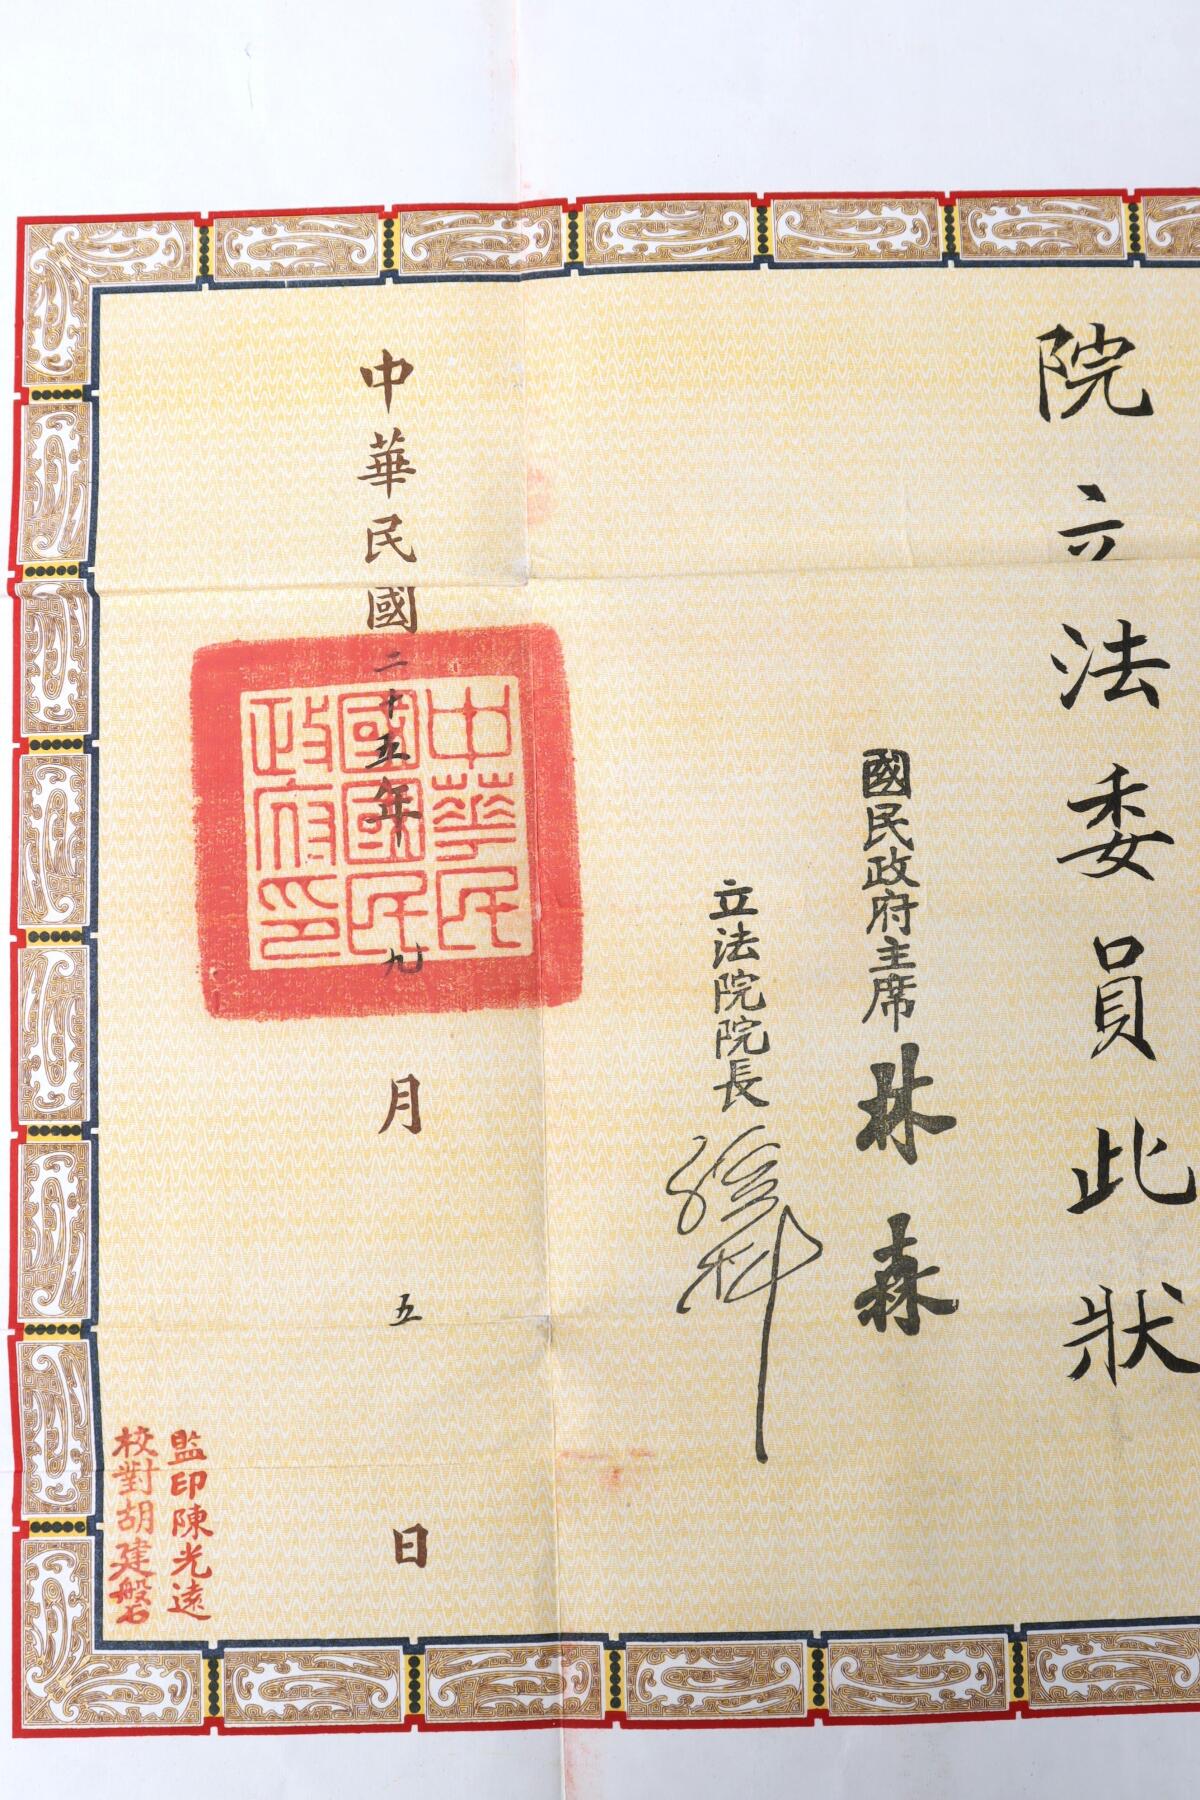 院立法委員此狀
國民政府主席 林森
立法院院長 孫科
中華民國二十五年九月五日
中華民國國民政府印
監印陳光遠
校對胡建磐